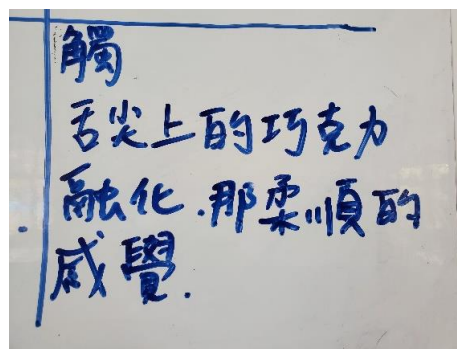 觸
舌尖上的巧克力
融化.那柔順的
感覺.